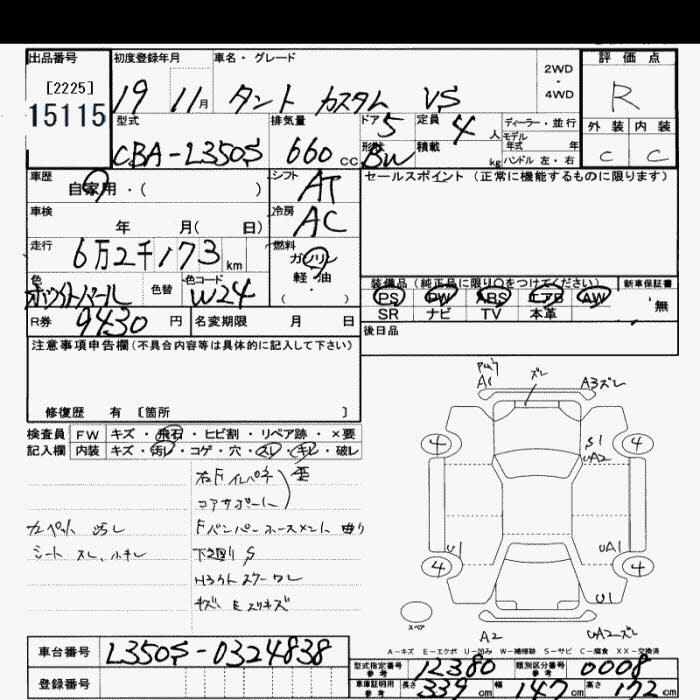 出品番号
[2225]
15115
初度登録年月
19 11月
車名・グレード
タント カスタム VS
2WD
・
4WD
評価点
R
外装 内装
C C
型式
CBA-L350S
排気量
660 CC
ドア 5
形状 BW
定員 4 人
積載 kg
ディーラー・並行
モデル年式 年
ハンドル 左・右
車歴
自家用・( )
シフト
AT
セールスポイント (正常に機能するものに限ります)
車検
年 月( 日)
冷房
AC
走行
6万2千173 km
燃料
ガソリン
軽・油
( )
色
ホワイトパール
色替
色コード
W24
装備品 (純正品に限り○をつけてください)
新車保証書
PS PW ABS エアB AW
SR ナビ TV 本革
無
R券 9430 円
名変期限 月 日
後日品
注意事項申告欄(不具合内容等は具体的に記入して下さい)
修復歴 有 [箇所 ]
検査員 FW キズ・飛石・ヒビ割・リペア跡・×要
記入欄 内装 キズ・汚レ・コゲ・穴・スレ・キレ・破レ
右Fインパネ 歪
コアサポート
カーペット 汚レ
Fバンパーホースメント 曲り
シート スレ、
下廻り S
A1
ズレ
A3ズレ
4 4
S1
UA2
U1 UA1
4 4
U1
スペア
A2
UA2ズレ
A－キズ E－エクボ U－凹み W－補修跡 S－サビ C－腐食 XX－交換済
車台番号 L350S-0324838
登録番号
型式指定番号 参考 12380
類別区分番号 参考 0008
車庫証明用 参考 長さ 339 cm 幅 147 cm 高さ 172 cm